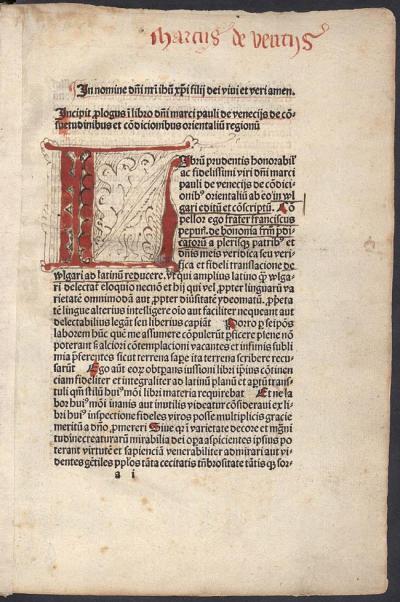 marcus de venetijs
In nomine dñi nr̃i ihũ xp̃i filij dei viui et veri amen.
Incipit ꝓlogus ĩ libro dñi marci pauli de venecijs de cõ-
suetudinibus et cõdicionibus orientaliũ regionũ
LIbrũ prudentis honorabil'
ac fidelissimi viri dñi marci
pauli de venecijs de cõdici-
onib' orientaliũ ab eo in wl
gari editũ et cõscriptũ. Cõ
pellor ego frater franciscus
pepuñ. de bononia frm̃ p̃di
catorũ a plerisqꝫ patrib' et
dñis meis veridica seu veri-
fica et fideli translacione de
wlgari ad latinũ reducere. vt qui amplius latino qͥ wlga
ri delectãt eloquio necnõ et hij qui vel ꝓpter linguarũ va
rietatẽ omnimodã aut ꝓpter diuersitatẽ ydeomatũ. ꝓprieta
tẽ lingue alterius intelligere oĩo aut faciliter nequeant aut
delectabilius legãt seu liberius capiãt Porro ꝑ seipõs
laborem hũc quẽ me assumere cõpulerũt ꝑficere plene nõ
poterant sꝫ alciori cõtemplacioni vacantes et infimis subli
mia p̃ferentes sicut terrena sapẽ ita terrena scribere recu-
sarũt Ego aũt eoꝝ obtꝑans iussioni libri ip̃ius cõtinen
ciam fideliter et integraliter ad latinũ planũ et aptũ trans-
tuli qm̃ stilũ hui' mõi libri materia requirebat Et ne la
bor hui' mõi inanis aut inutilis videatur cõsideraui ex li-
bri hui' inspectione fideles viros posse multiplicis gracie
meritũ a dño ꝓmereri Siue qͥ ĩ varietate decore et mg̃ni
tudine creaturarũ mirabilia dei oꝑa aspicientes ipsius po
terant virtutẽ et sapienciã venerabiliter admirari aut vi-
dentes gẽtiles pp̃los tãta cecitatis tẽbrositate tãtisqꝫ sor-
a i